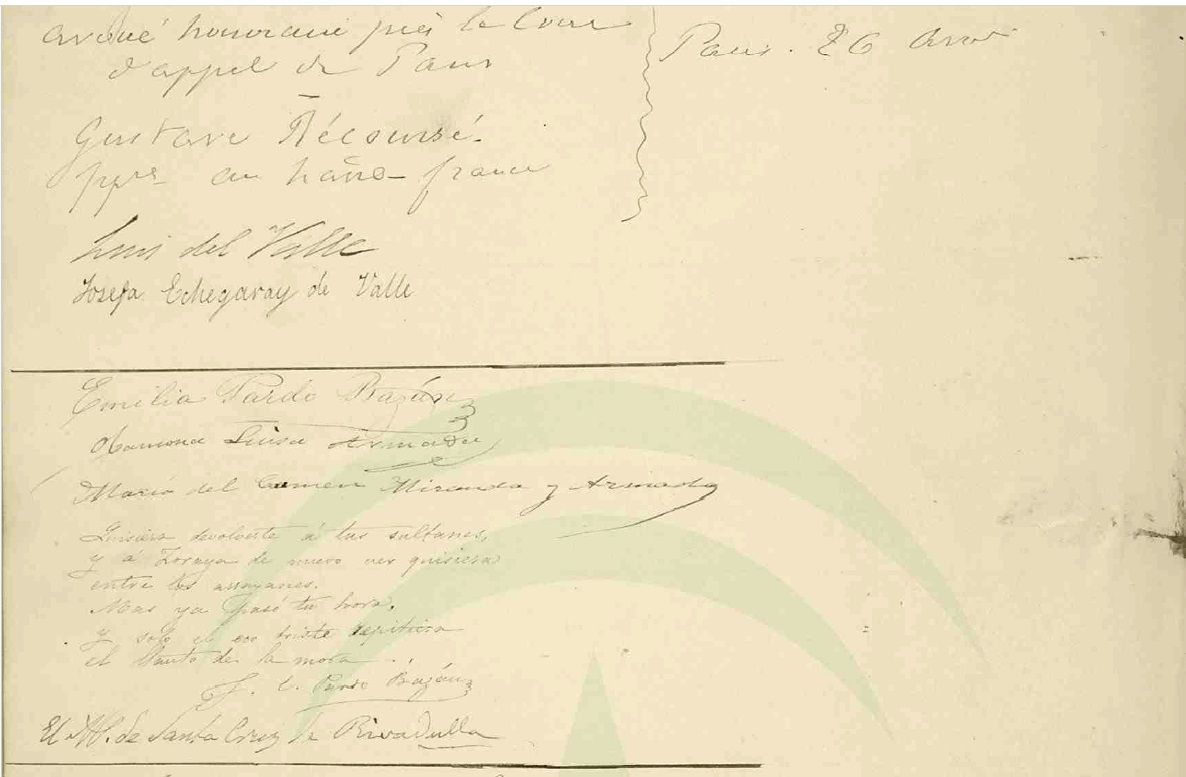 avoué honoraire près la Cour
d'appel de Paris
Paris. 26 Avril
Gustave
ppre au france
Luis del Valle
Josefa Echegaray de Valle
Emilia Pardo Bazán
Ramona Luisa Armada
María del Carmen Miranda y Armada
Quisiera devolverte á tus sultanes,
y á Zoraya de nuevo ver quisiera
entre los arrayanes.
Mas ya pasó tu hora,
y solo el eco triste repitiera
el llanto de la mora
E. Pardo Bazán
El M. de Santa Cruz de Rivadulla